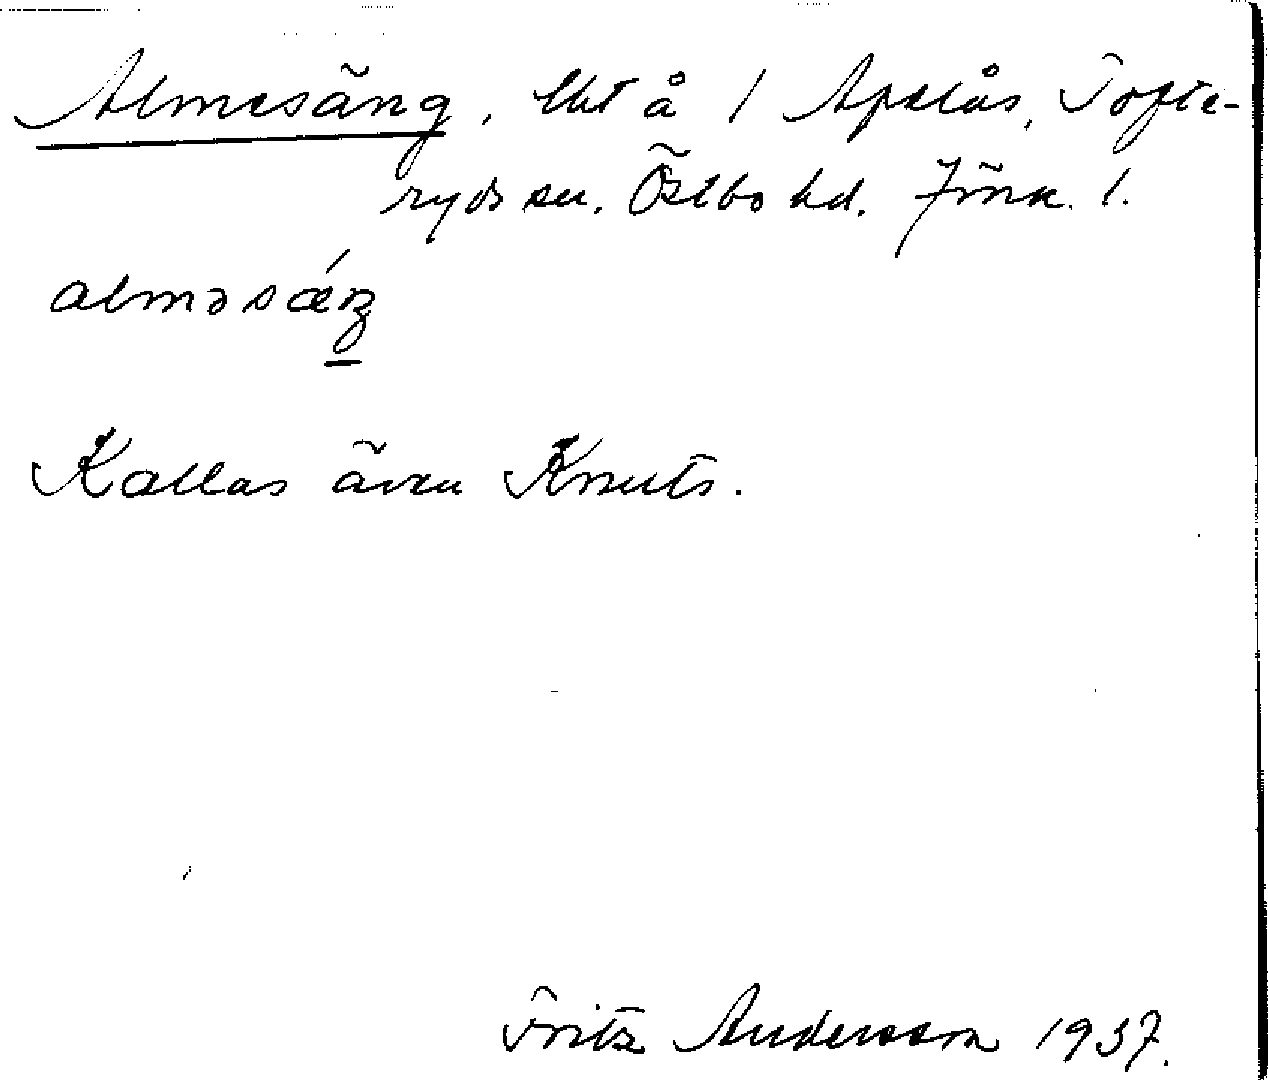 Almesäng, lht å 1 Apelås, Tofte-
ryds sn. Östbo hd. Jönk. l.
alməsǽŋ
Kallas även Knuts.
Fritz Andersson 1937.